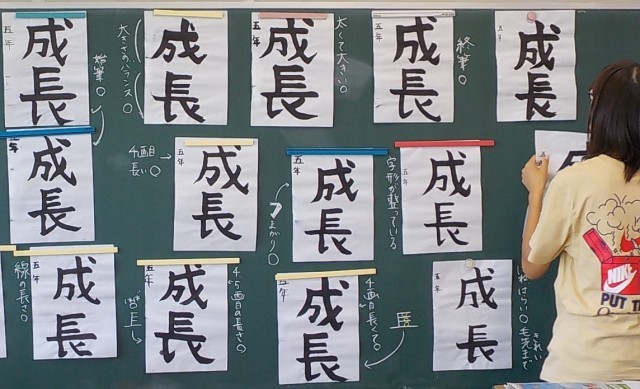 五年
成長
大きさのバランス○
成長
五年
成長
太くて大きい○
五年
成長
終筆○
五年
成長
始筆○
五年
成長
4画目
長い○
五年
成長
まがり○
五年
成長
字形が整っている
五年
成長
線の長さ○
五年
成長
五年
成長
4、5画目の長さ○
五年
成長
4画目長くて○
五年
成長
はらい○毛先まで
きれい
NIKE
PUT T